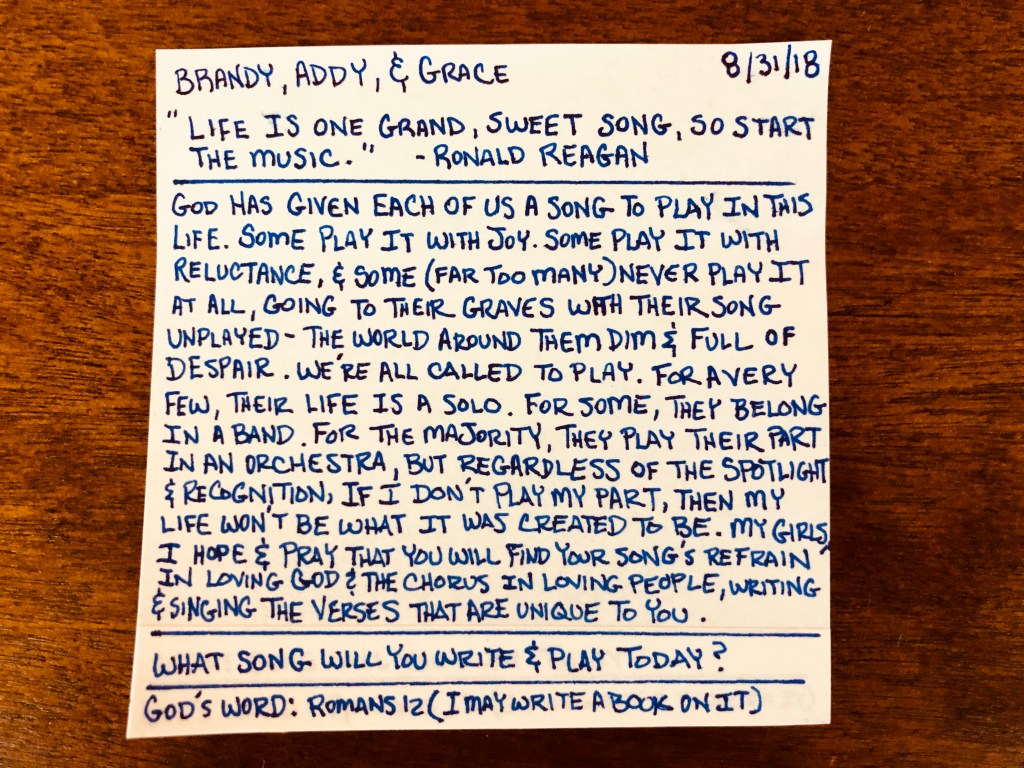 BRANDY, ADDY, & GRACE 8/31/18
"LIFE IS ONE GRAND, SWEET SONG, SO START
THE MUSIC." - RONALD REAGAN
GOD HAS GIVEN EACH OF US A SONG TO PLAY IN THIS
LIFE. SOME PLAY IT WITH JOY. SOME PLAY IT WITH
RELUCTANCE, & SOME (FAR TOO MANY) NEVER PLAY IT
AT ALL, GOING TO THEIR GRAVES WITH THEIR SONG
UNPLAYED - THE WORLD AROUND THEM DIM & FULL OF
DESPAIR. WE'RE ALL CALLED TO PLAY. FOR A VERY
FEW, THEIR LIFE IS A SOLO. FOR SOME, THEY BELONG
IN A BAND. FOR THE MAJORITY, THEY PLAY THEIR PART
IN AN ORCHESTRA, BUT REGARDLESS OF THE SPOTLIGHT
& RECOGNITION, IF I DON'T PLAY MY PART, THEN MY
LIFE WON'T BE WHAT IT WAS CREATED TO BE. MY GIRLS,
I HOPE & PRAY THAT YOU WILL FIND YOUR SONG'S REFRAIN
IN LOVING GOD & THE CHORUS IN LOVING PEOPLE, WRITING
& SINGING THE VERSES THAT ARE UNIQUE TO YOU.
WHAT SONG WILL YOU WRITE & PLAY TODAY?
GOD'S WORD: ROMANS 12 (I MAY WRITE A BOOK ON IT)